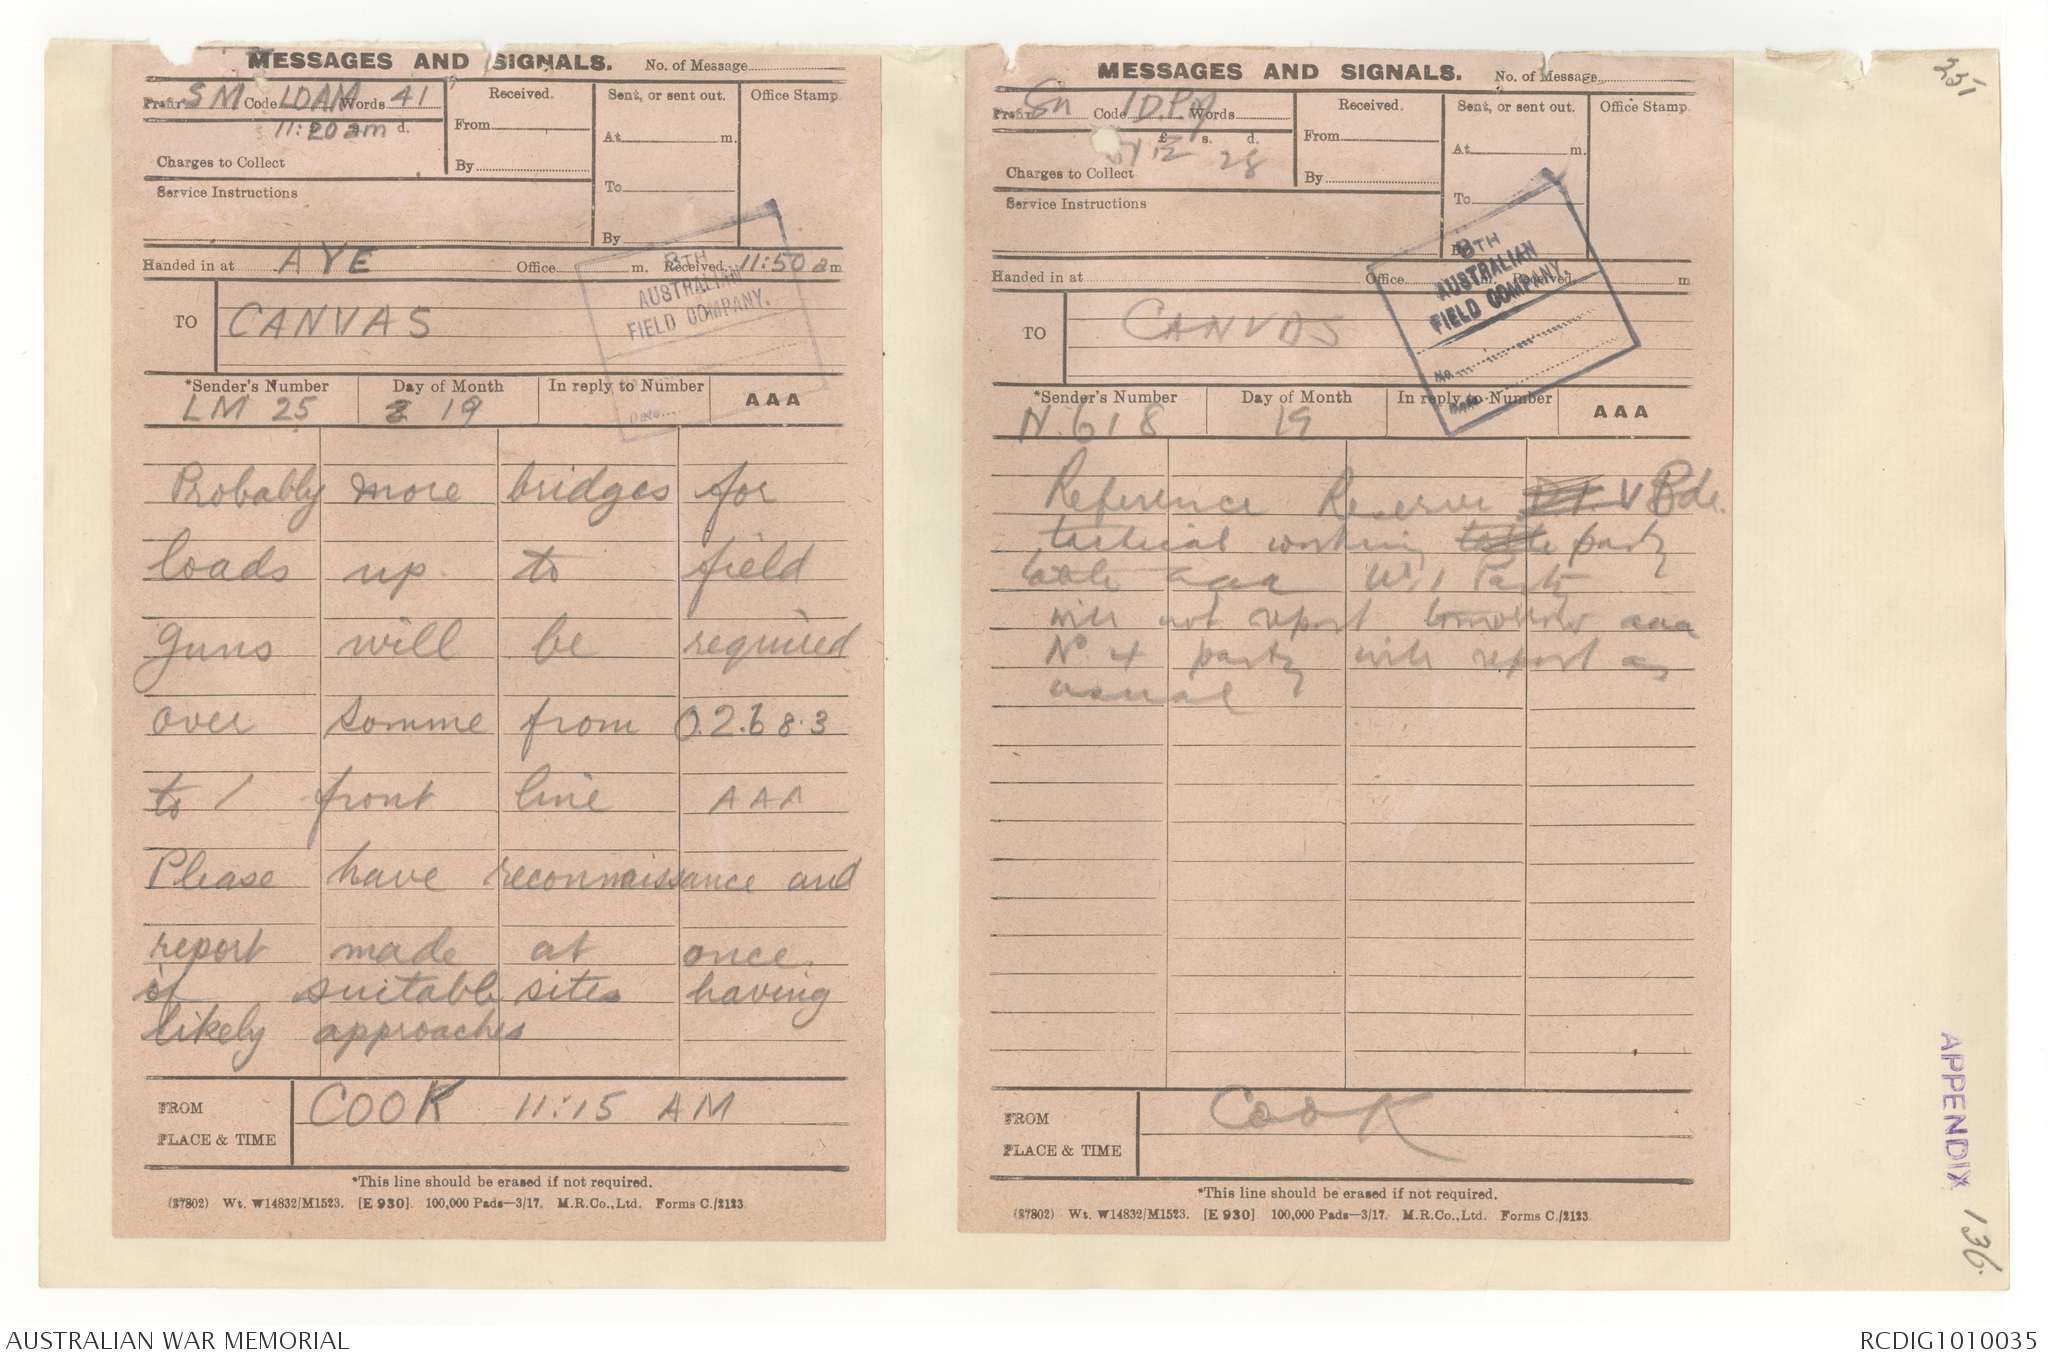 MESSAGES AND SIGNALS. No. of Message
Prefix SM Code IDAM Words 41
11:20 am d.
Charges to Collect
Service Instructions
Received.
From
By
Sent, or sent out.
At m.
To
By
Office Stamp.
Handed in at AYE Office m. Received 11:50 am
TO CANVAS
8TH
AUSTRALIAN
FIELD COMPANY.
Date
*Sender's Number Day of Month In reply to Number AAA
LM 25 19
Probably more bridges for
loads up to field
guns will be required
over Somme from O.2.b 8.3
to / front line AAA
Please have reconnaissance and
report made at once.
of suitable sites having
likely approaches
FROM
PLACE & TIME
COOK 11:15 AM
*This line should be erased if not required.
(27802) Wt. W14832/M1523. [E 930] 100,000 Pads—3/17. M.R.Co., Ltd. Forms C./2123
MESSAGES AND SIGNALS. No. of Message
Prefix Sm Code IDPA Words
£ s. d.
12 28
Charges to Collect
Service Instructions
Received.
From
By
Sent, or sent out.
At m.
To
By
Office Stamp.
Handed in at Office m. Received m
TO CANVAS
8TH
AUSTRALIAN
FIELD COMPANY.
No.
Date
*Sender's Number Day of Month In reply to Number AAA
N.618 19
Reference Reserve V Bde.
tactical working party
table aaa No 1 Party
will not report tomorrow aaa
No 4 party will report as
usual
FROM
PLACE & TIME
Cook
*This line should be erased if not required.
(27802) Wt. W14832/M1523. [E 930] 100,000 Pads—3/17. M.R.Co., Ltd. Forms C./2123
251
APPENDIX 136.
AUSTRALIAN WAR MEMORIAL
RCDIG1010035